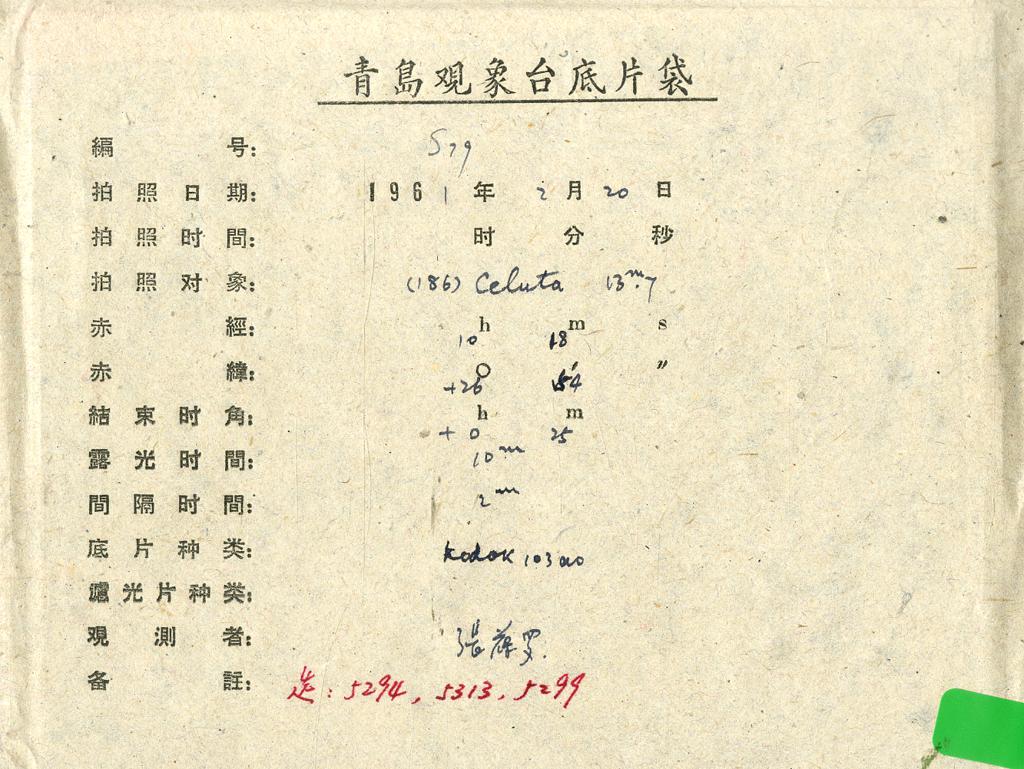 青島观象台底片袋
編号: S79
拍照日期: 1961年 2月 20日
拍照时間: 时 分 秒
拍照对象: (186) Celuta 13ᵐ.7
赤經: 10h 18m s
赤緯: +26° 54′ ″
結束时角: +0h 25m
露光时間: 10ᵐ
間隔时間: 2ᵐ
底片种类: Kodak 103ao
濾光片种类:
观測者: 張
备註: 5294, 5313, 5299